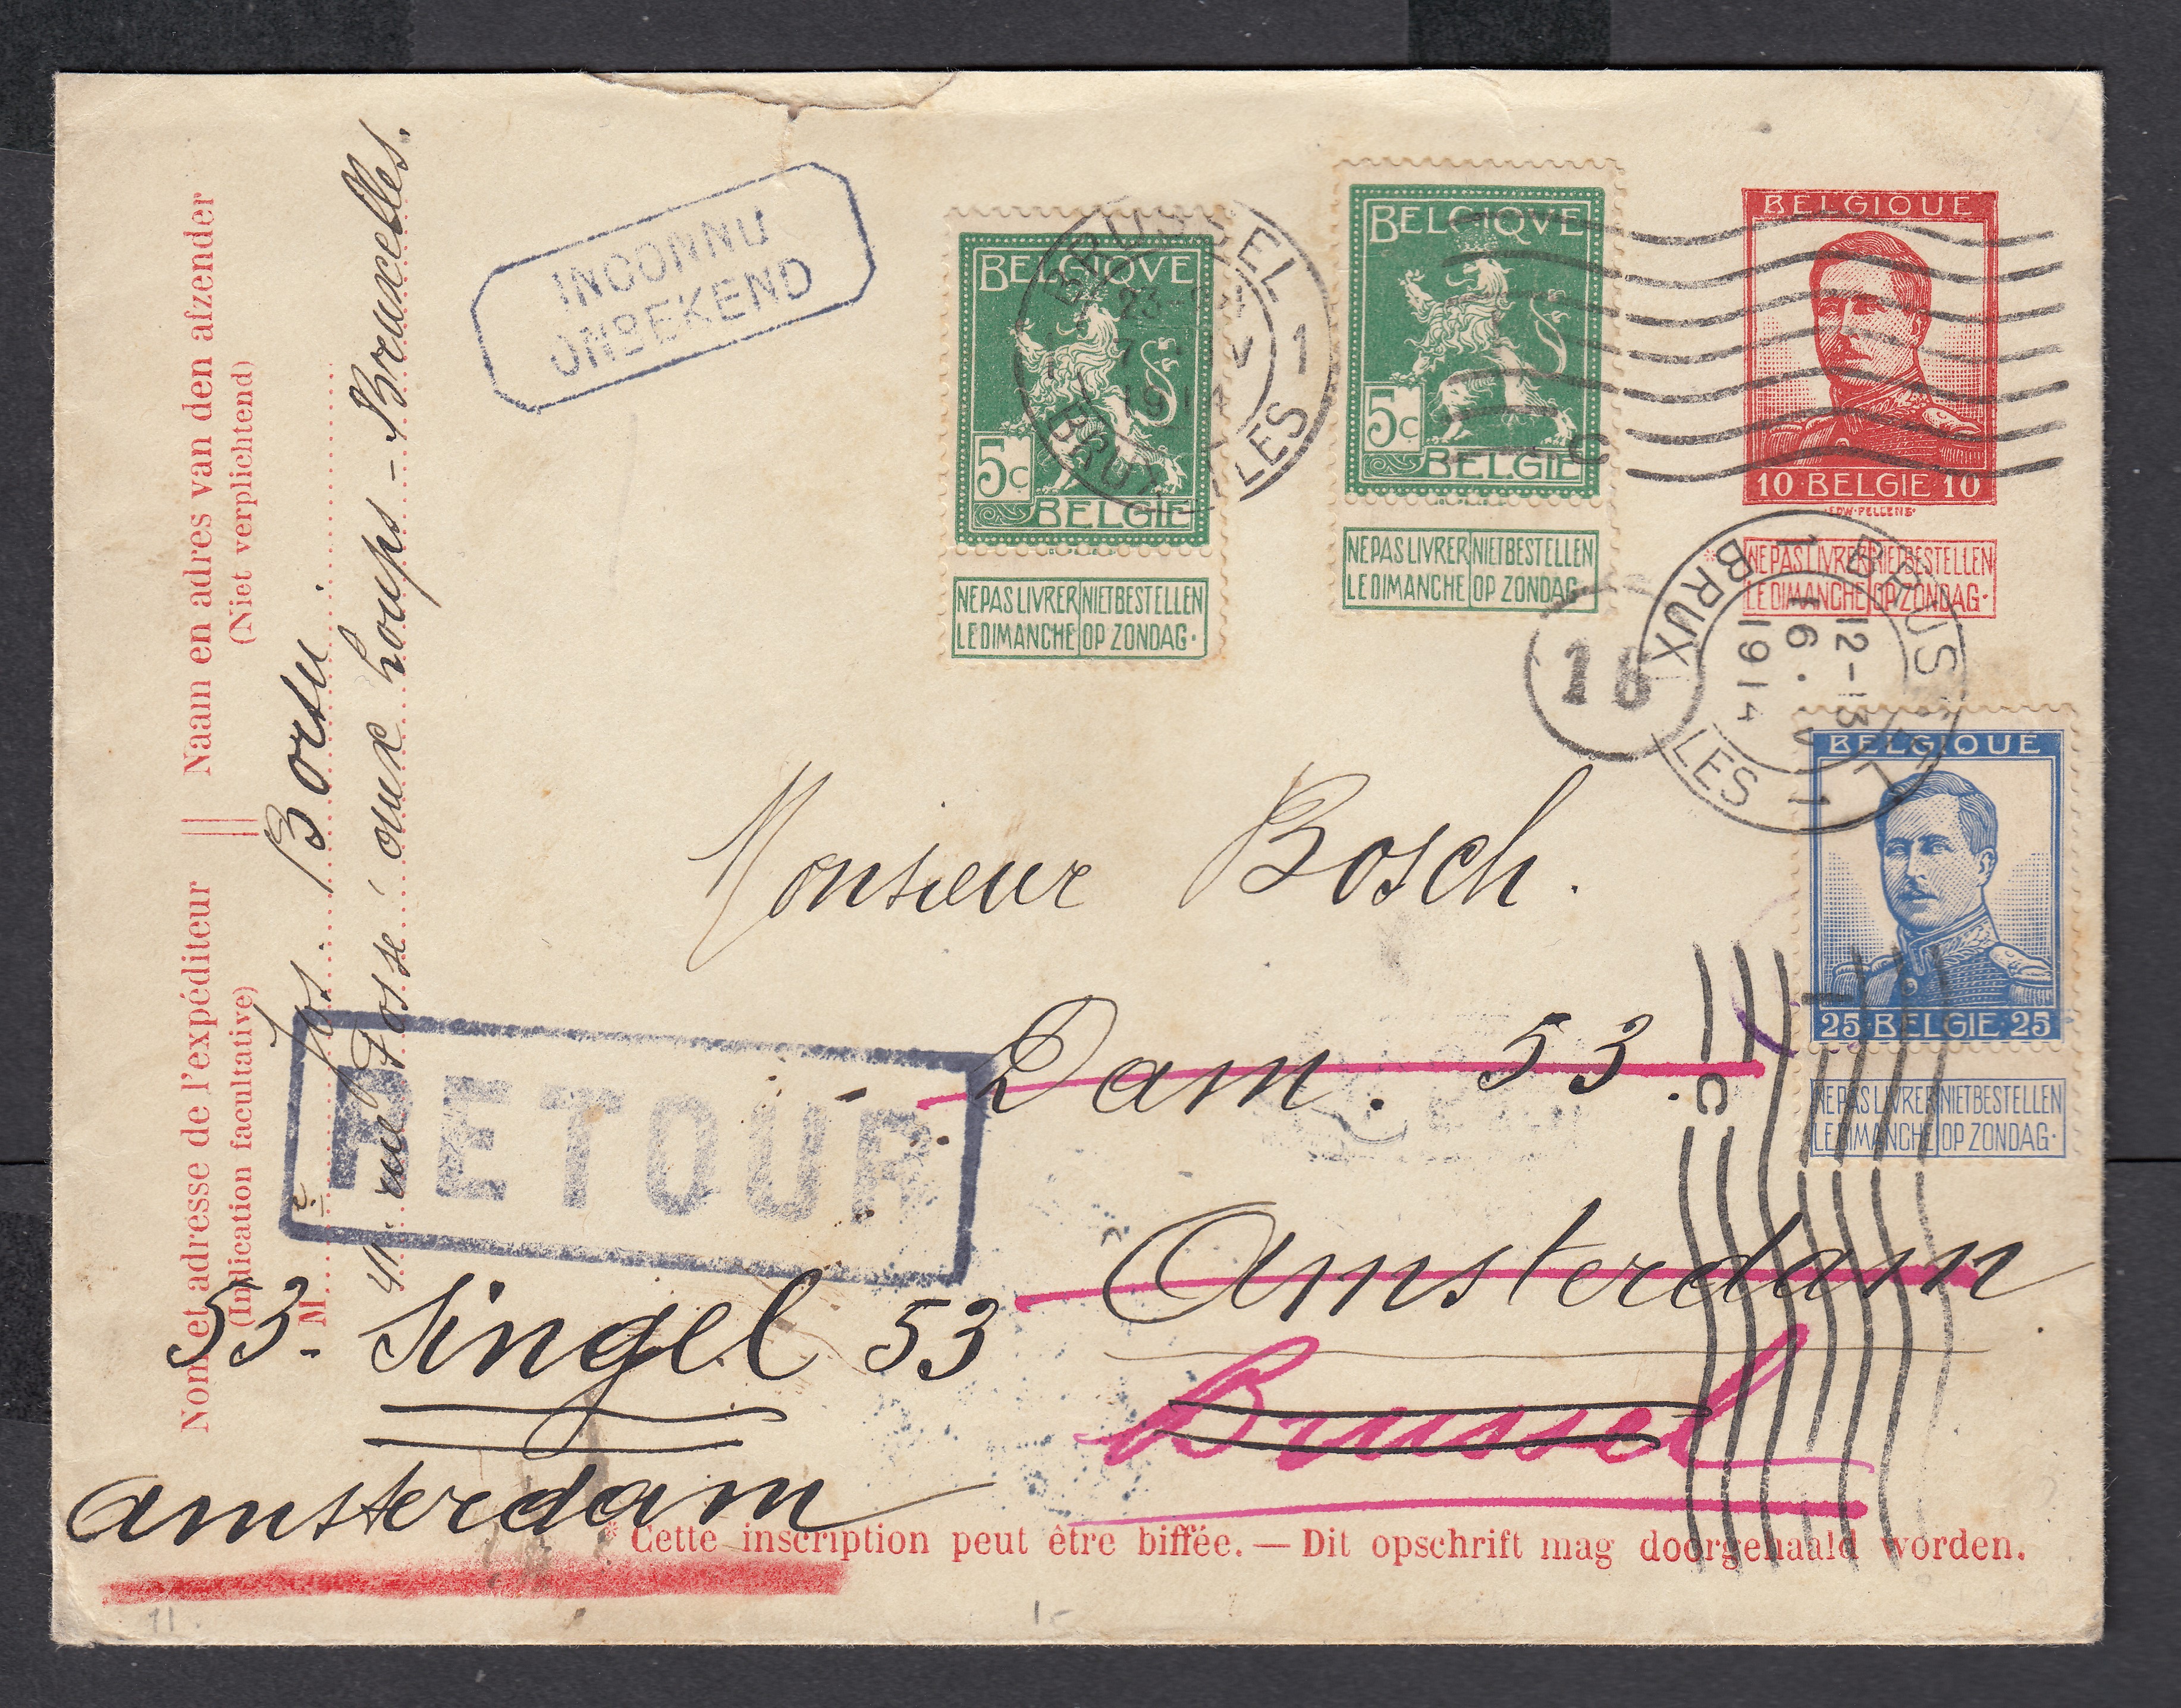 BELGIQUE
10 BELGIE 10
EDW·PELLENS·
*NE PAS LIVRER NIET BESTELLEN
LE DIMANCHE OP ZONDAG·
BELGIQVE
5c
BELGIE
NE PAS LIVRER NIET BESTELLEN
LE DIMANCHE OP ZONDAG
C
BELGIQVE
5c
BELGIE
NE PAS LIVRER NIET BESTELLEN
LE DIMANCHE OP ZONDAG·
1 BRUSSEL 1
BRUXELLES
7 - IV
1914
INCONNU
ONBEKEND
16
1 BRUSSEL 1
BRUXELLES
12-13
16. IV
1914
BELGIQUE
25 BELGIE 25
NE PAS LIVRER NIET BESTELLEN
LE DIMANCHE OP ZONDAG·
C
Nom et adresse de l'expéditeur || Naam en adres van den afzender
(Indication facultative) (Niet verplichtend)
M. Jos. Borsu
rue Fossé aux Loups - Bruxelles.
Monsieur Bosch.
Dam. 53.
Amsterdam
Brussel
RETOUR
53. Singel 53
Amsterdam
* Cette inscription peut être biffée. — Dit opschrift mag doorgehaald worden.
11.
1-